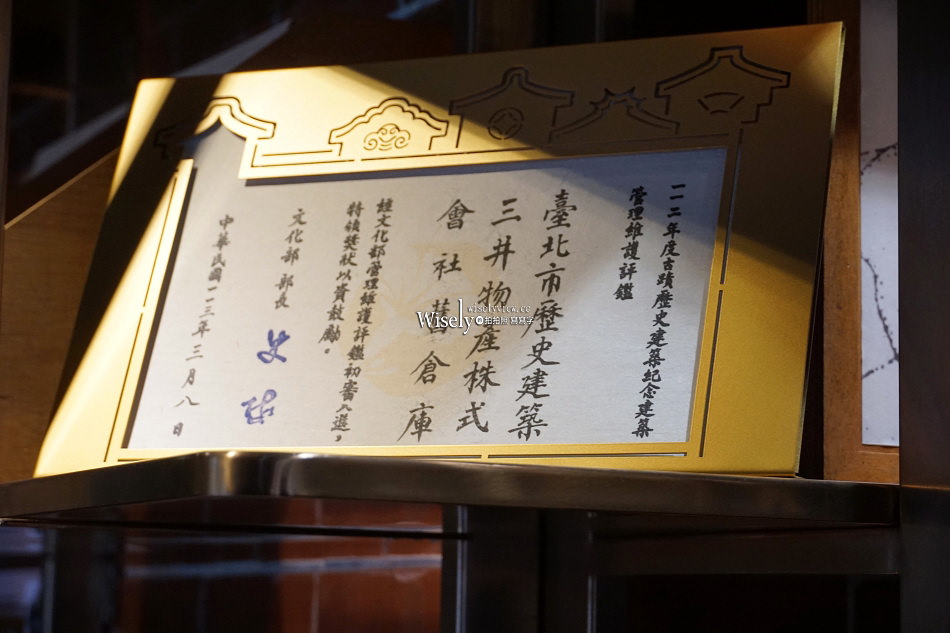 一一二年度古蹟歷史建築紀念建築
管理維護評鑑
臺北市歷史建築
三井物產株式
會社舊倉庫
經文化部管理維護評鑑初審入選，
特頒獎狀以資鼓勵。
文化部 部長 史哲
中華民國一一三年三月八日
wiselyview.cc
Wisely拍拍照寫寫字